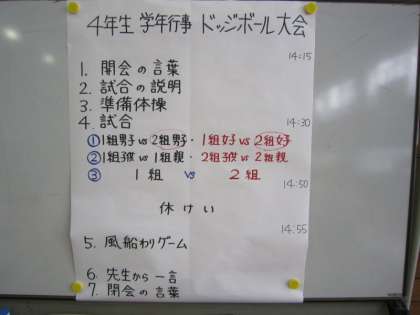 4年生 学年行事 ドッジボール大会
14:15
1. 開会の言葉
2. 試合の説明
3. 準備体操
4. 試合 14:30
① 1組男子 vs 2組男子・1組女子 vs 2組女子
② 1組子供 vs 1組親・2組子供 vs 2組親
③ 1組 vs 2組
14:50
休けい
14:55
5. 風船わりゲーム
6. 先生から一言
7. 閉会の言葉